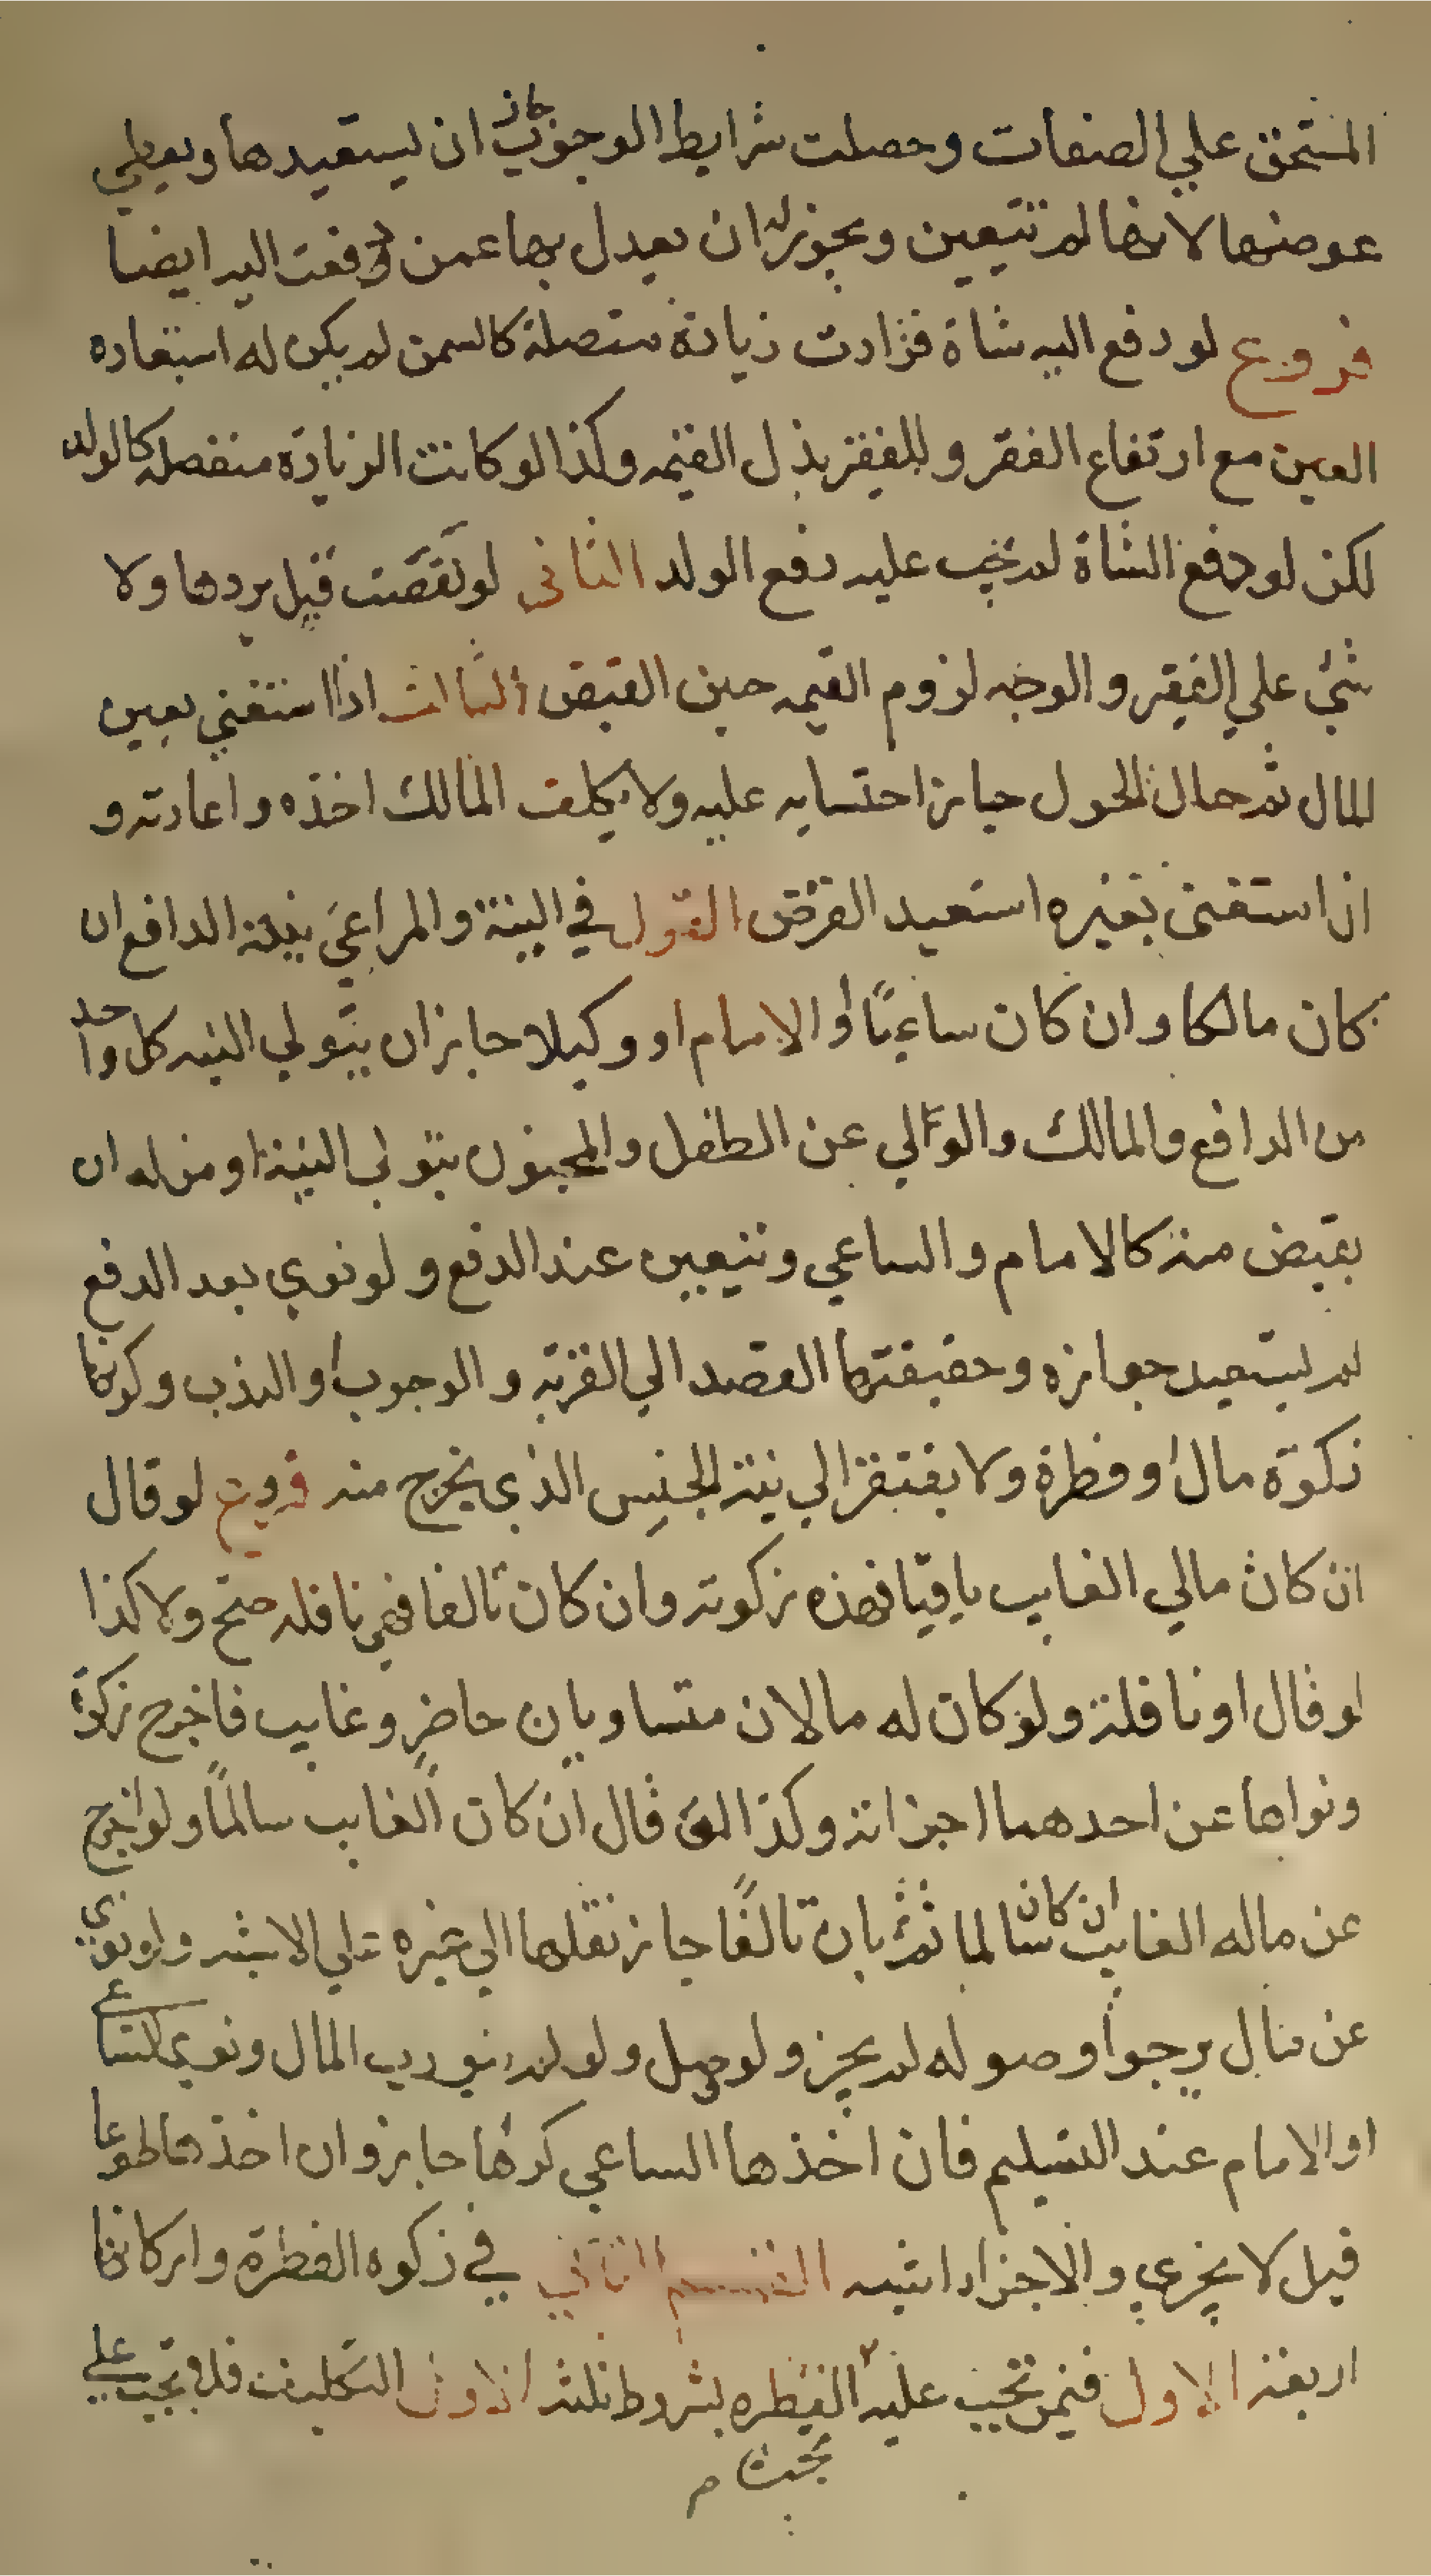 المستحق علي الصفات وحصلت شرايط الوجوب جاز ان يستعيدها ويعطي
عوضها لانها لم تتعين ويجوز له ان يعدل بها عمن دفعت اليه ايضا
فروع لو دفع اليه شاة فزادت زيادة متصلة كالسمن لم يكن له استعاده
العين مع ارتفاع الفقر وللفقير بذل القيمه وكذا لو كانت الزيادة منفصله كالولد
لكن لو دفع الشاة لم يجب عليه دفع الولد الثاني لو نقصت قيل بردها ولا
شئ علي الفقير والوجه لزوم القيمه حين القبض الثالث اذا استغني بعين
المال ثم حال الحول جاز احتسابه عليه ولا يكلف المالك اخذه واعادته و
ان استغنى بغيره استعيد القرض القول في النية والمراعي نية الدافع ان
كان مالكا وان كان ساعيًا او الامام او وكيلا جاز ان يتولي النيه كل واحد
من الدافع والمالك والوالي عن الطفل والمجنون يتولي النية او من له ان
يقبض منه كالامام والساعي وتتعين عند الدفع ولو نوي بعد الدفع
لم يستعيد جوازه وحقيقتها القصد الي القربة والوجوب او الندب وكونها
زكوة مال او فطرة ولا يفتقر الي نية الجنس الذي يخرج منه فروع لو قال
ان كان مالي الغايب باقيا فهذه زكوته وان كان تالفا فهي نافله صح ولا كذا
لو قال او نافلة ولو كان له مالان متساويان حاضر وغايب فاخرج زكوة
ونواها عن احدهما اجزاته وكذا لو قال ان كان الغايب سالمًا ولو اخرج
عن ماله الغايب ان كان سالما ثم بان تالفًا جاز نقلها الي غيره علي الاشبه ولو نوي
عن مال يرجوا وصوله لم يجز ولو وصل ولو لم ينو رب المال ونوي الساعي
او الامام عند التسليم فان اخذها الساعي كرها جاز وان اخذها طوعا
قيل لا يجزي والاجزاء اشبه القسم الثاني في زكوه الفطرة واركانها
اربعة الاول فيمن تجب عليه الفطره بشروط ثلثه الاول التكليف فلا تجب علي